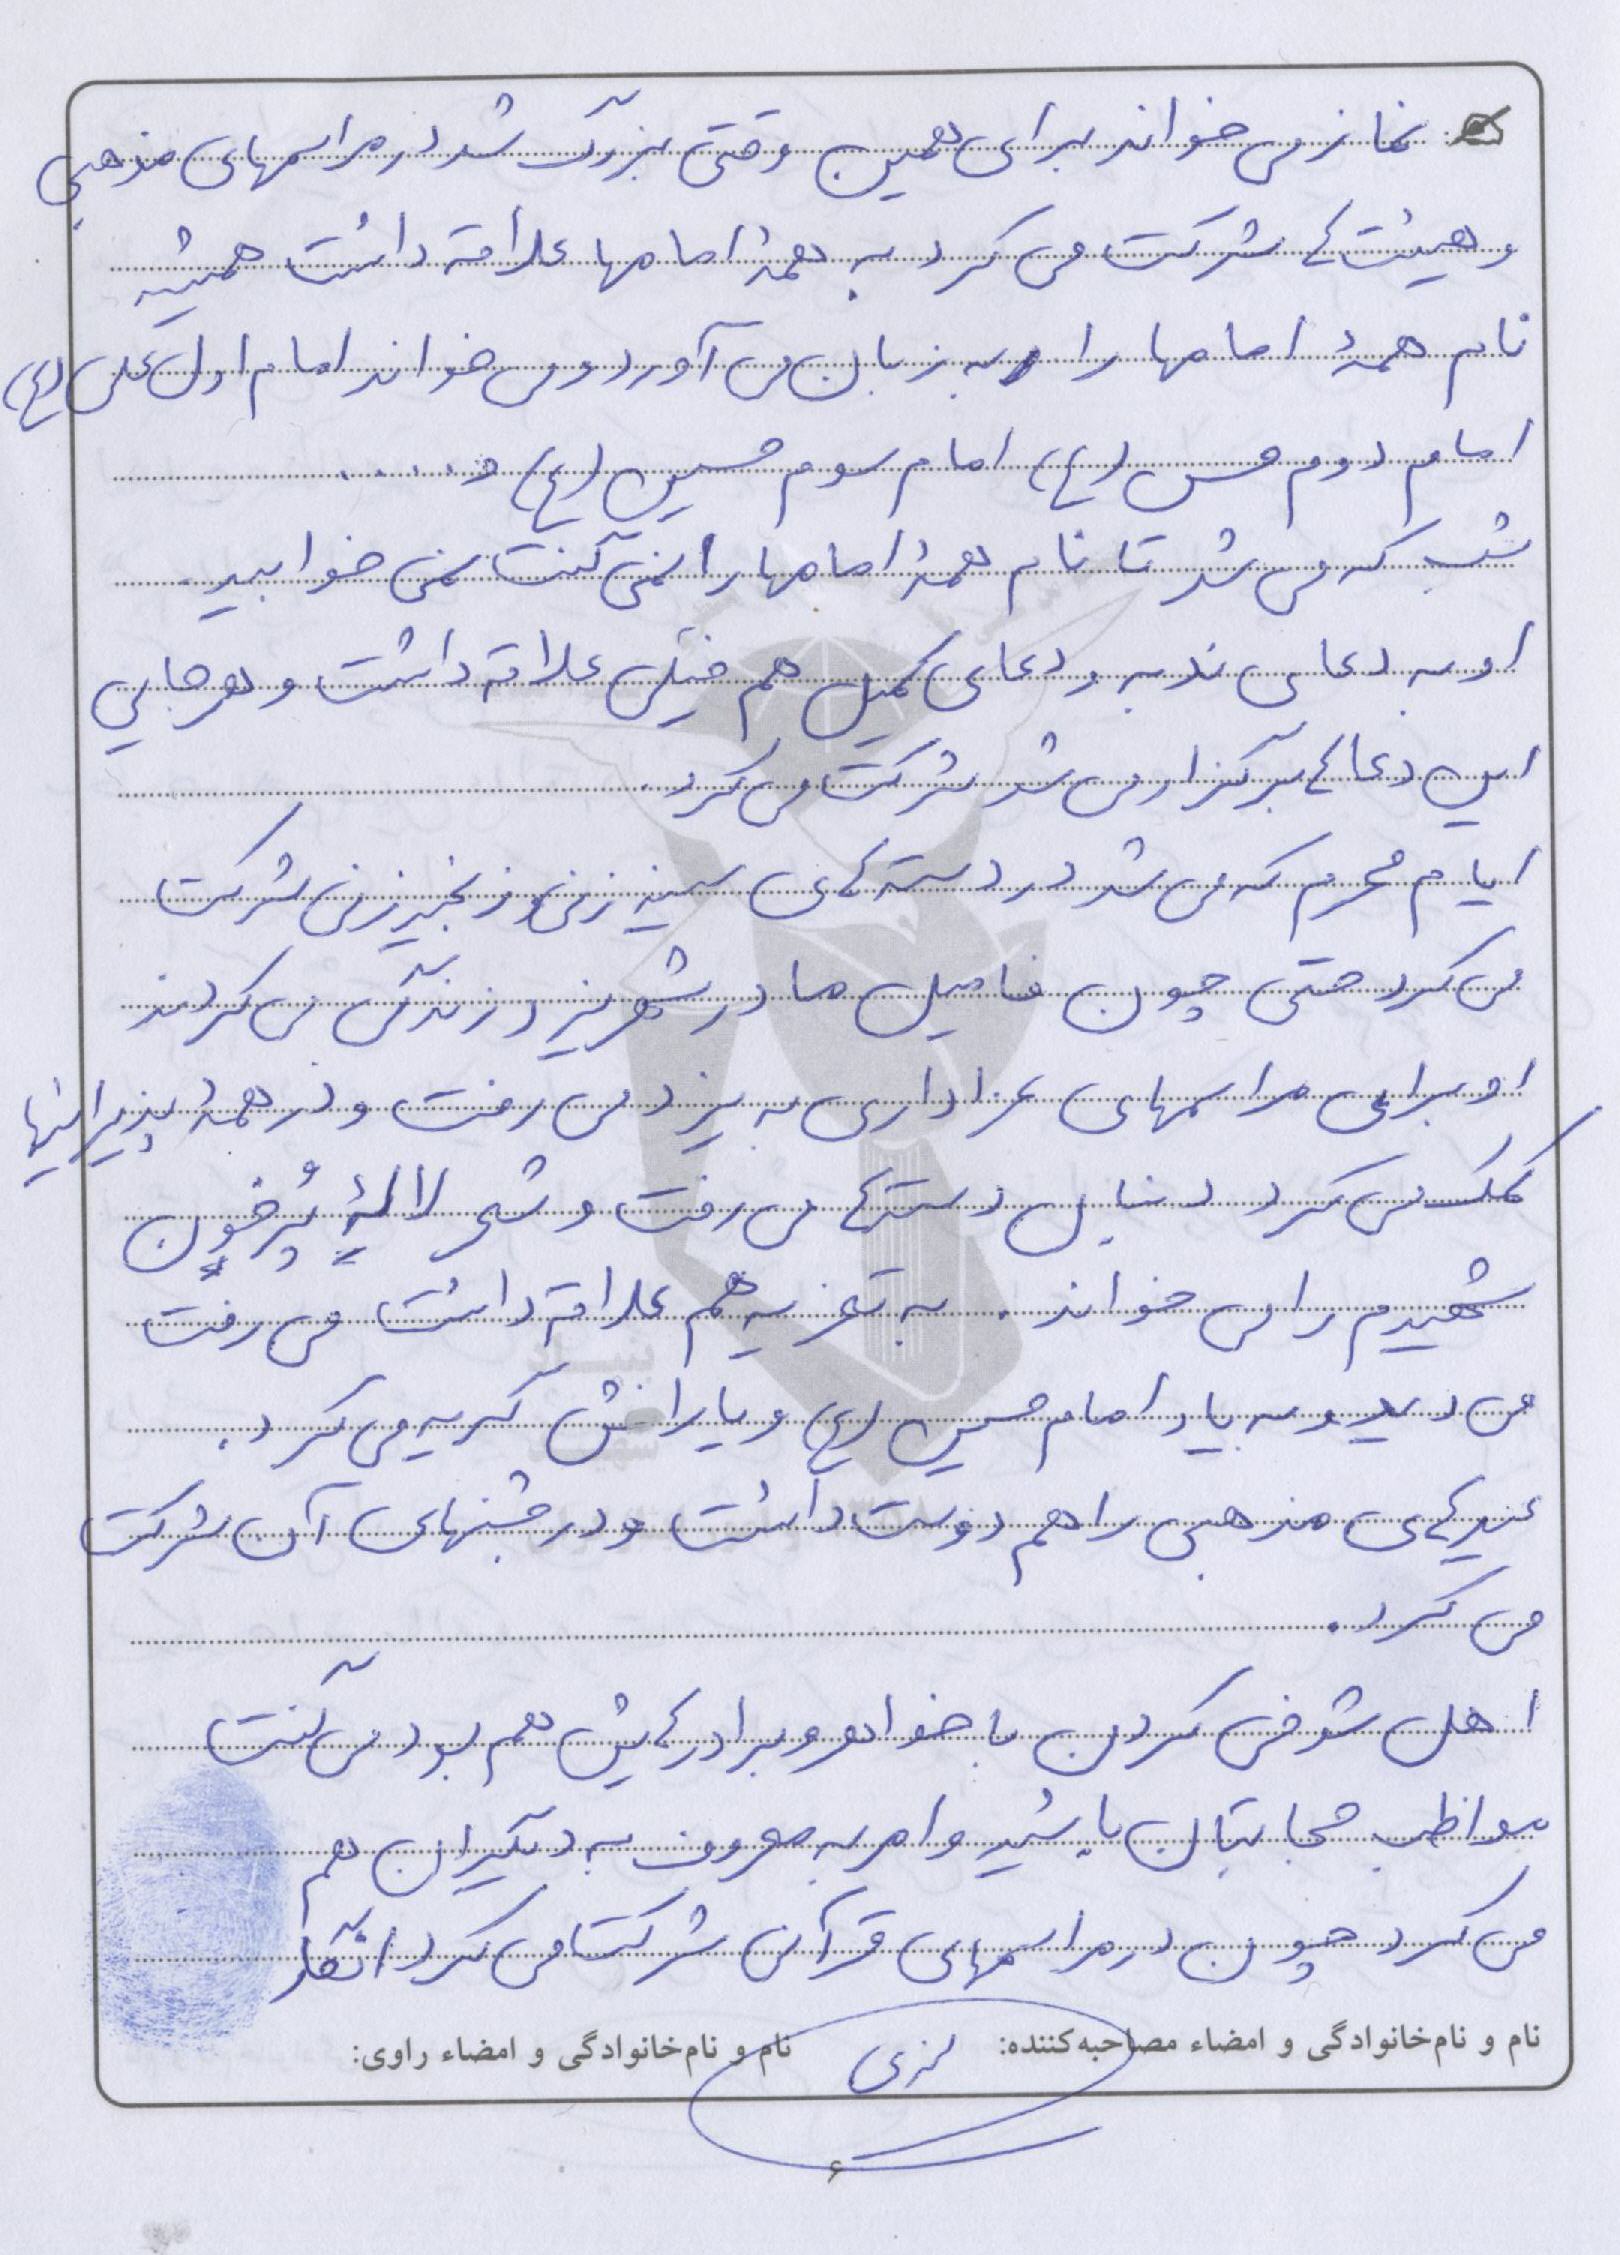 نماز می خواند برای همین وقتی بزرگ شد در مراسمهای مذهبی
و هیئت ها شرکت می کرد به همهٔ امامها علاقه داشت همیشه
نام همهٔ امامها را به زبان می آورد و می خواند امام اول علی (ع)
امام دوم حسن (ع)، امام سوم حسین (ع) و .....
شب که می شد تا نام همهٔ امامها را نمی گفت نمی خوابید.
او به دعای ندبه و دعای کمیل هم خیلی علاقه داشت و هر جایی
این دعا ها برگزار می شد شرکت می کرد.
ایام محرم که می شد در دسته های سینه زنی و زنجیر زنی شرکت
می کرد حتی چون فامیل ما در شهر یزد زندگی می کردند
او برای مراسمهای عزاداری به یزد می رفت و در همهٔ پذیرائیها
کمک می کرد دنبال دسته ها می رفت و شعر لالهٔ پُرخونِ
شهیدم را می خواند. به تعزیه هم علاقه داشت می رفت
می دید و به یاد امام حسین (ع) و یارانش گریه می کرد.
عید های مذهبی را هم دوست داشت و در جشنهای آن شرکت
می کرد.
اهل شوخی کردن با خواهر و برادر هایش هم بود می گفت
مواظب حجابتان باشید و امر به معروف به دیگران هم
می کرد چون در مراسمهای قرآن شرکت می کرد انگار
نام و نام‌خانوادگی و امضاء مصاحبه‌کننده:
نام و نام‌خانوادگی و امضاء راوی:
۶